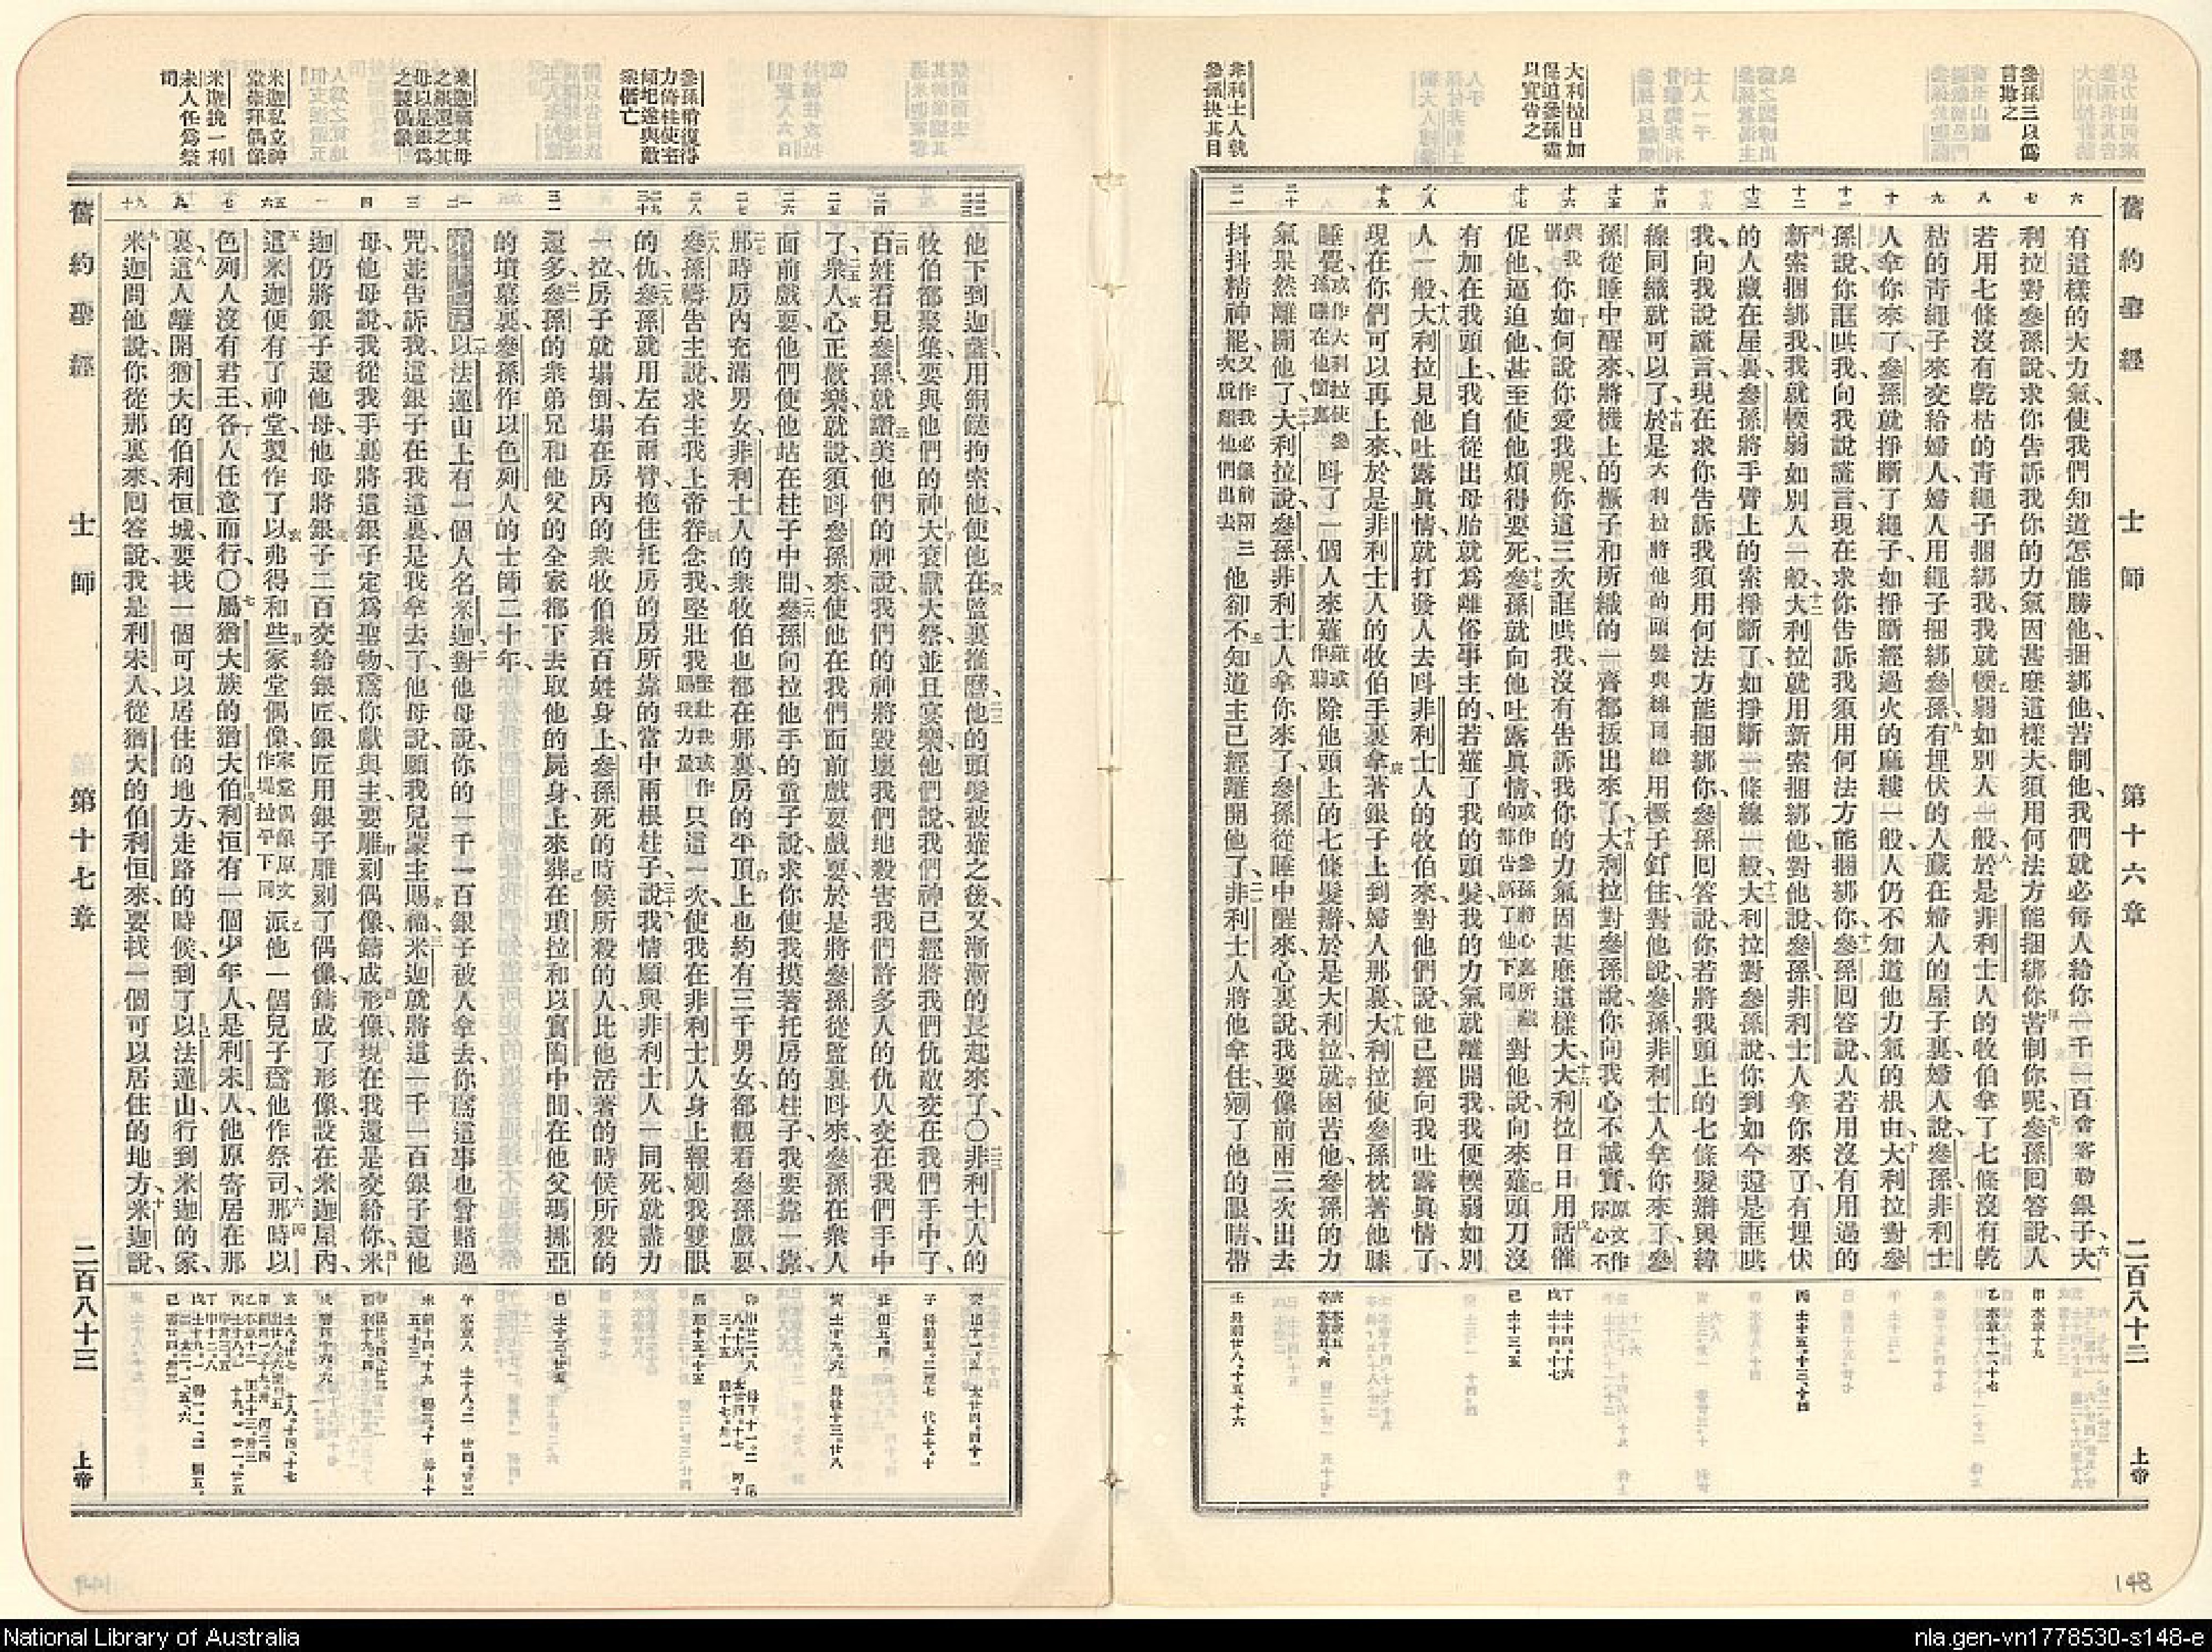 舊約聖經　士師　第十六章　二百八十二　上帝
參孫三以僞言欺之
大利拉日加促迫參孫盡以實告之
非利士人執參孫抉其目
有這樣的大力氣、使我們知道怎能勝他、捆綁他、苦制他、我們就必每人給你一千一百舍客勒銀子、大
利拉對參孫說、求你告訴我、你的力氣因甚麽這樣大、須用何法方能捆綁你苦制你呢、參孫回答說、人
若用七條沒有乾枯的青繩子捆綁我、我就輭弱如別人一般、於是非利士人的牧伯拿了七條沒有乾
枯的青繩子來交給婦人、婦人用繩子捆綁參孫、有埋伏的人藏在婦人的屋子裏、婦人說、參孫、非利士
人拿你來了、參孫就掙斷了繩子、如掙斷經過火的麻縷一般、人仍不知道他力氣的根由、大利拉對參
孫說、你誆哄我、向我說謊言、現在求你告訴我、須用何法方能捆綁你、參孫回答說、人若用沒有用過的
新索捆綁我、我就輭弱如別人一般、大利拉就用新索捆綁他、對他說、參孫、非利士人拿你來了、有埋伏
的人藏在屋裏、參孫將手臂上的索掙斷了、如掙斷一條線一般、大利拉對參孫說、你到如今還是誆哄
我、向我說謊言、現在求你告訴我、須用何法方能捆綁你、參孫回答說、你若將我頭上的七條髮辮與緯
線同織就可以了、於是大利拉將他的頭髮與緯線同織用橛子釘住、對他說、參孫、非利士人拿你來了、參
孫從睡中醒來、將機上的橛子和所織的一齊都拔出來了、大利拉對參孫說、你向我心不誠實、原文作你心不
與我你如何說你愛我呢、你這三次誆哄我、沒有告訴我你的力氣因甚麽這樣大、大利拉日日用話催
促他、逼迫他、甚至使他煩得要死、參孫就向他吐露眞情、或作參孫將心裏所藏的都告訴了他下同對他說、向來薙頭刀沒
有加在我頭上、我自從出母胎就爲離俗事主的、若薙了我的頭髮、我的力氣就離開我、我便輭弱如別
人一般、大利拉見他吐露眞情、就打發人去叫非利士人的牧伯來、對他們說、他已經向我吐露眞情了、
現在你們可以再上來、於是非利士人的牧伯手裏拿著銀子上到婦人那裏、大利拉使參孫枕著他膝
睡覺、或作大利拉使參孫睡在他懷裏叫了一個人來薙薙或作翦除他頭上的七條髮辮、於是大利拉就困苦他、參孫的力
氣果然離開他了、大利拉說、參孫、非利士人拿你來了、參孫從睡中醒來、心裏說、我要像前兩三次出去
抖抖精神罷、又作我必像前兩三次就離他們出去他卻不知道主已經離開他了、非利士人將他拿住、剜了他的眼睛、帶
甲　本章十九
乙　本章十一、十七
丙　士十五。十三、十四
丁　士十四。十六
戊　士十四。十七
己　士十三。五
壬　母前廿八。十五、十六
148
舊約聖經　士師　第十七章　二百八十三　上帝
參孫稍復得力倚柱使室傾圮遂與敵衆偕亡
米迦竊其母之銀還之其母以是銀爲之製偶像
米迦私立神堂崇拜偶像
米迦挽一利未人任爲祭司
他下到迦薩、用銅鏈拘索他、使他在監裏推磨、他的頭髮被薙之後、又漸漸的長起來了、〇非利士人的
牧伯都聚集、要與他們的神大袞獻大祭、並且宴樂、他們說、我們神已經將我們仇敵交在我們手中了、
百姓看見參孫、就讚美他們的神說、我們的神將毀壞我們地殺害我們許多人的仇人交在我們手中
了、衆人心正歡樂、就說、須叫參孫來、使他在我們面前戲耍戲耍、於是將參孫從監裏叫來、參孫在衆人
面前戲耍、他們使他站在柱子中間、參孫向拉他手的童子說、求你使我摸著托房的柱子、我要靠一靠、
那時房內充滿男女、非利士人的衆牧伯也都在那裏、房的平頂上也約有三千男女、都觀看參孫戲耍、
參孫禱告主說、求主我上帝眷念我、堅壯我堅壯我或作賜我力量只這一次、使我在非利士人身上報剜我雙眼
的仇、參孫就用左右兩臂抱住托房的房所靠的當中兩根柱子、說、我情願與非利士人一同死、就盡力
一拉、房子就塌倒、塌在房內的衆牧伯衆百姓身上、參孫死的時候所殺的人、比他活著的時候所殺的
還多、參孫的衆弟兄和他父的全家都下去取他的屍身上來、葬在瑣拉和以實陶中間、在他父瑪挪亞
的墳墓裏、參孫作以色列人的士師二十年、
第十七章以法蓮山上有一個人名米迦、對他母說、你的一千一百銀子被人拿去、你爲這事也曾賭過
咒、並告訴我、這銀子在我這裏、是我拿去了、他母說、願我兒蒙主賜福、米迦就將這一千一百銀子還他
母、他母說、我從我手裏將這銀子定爲聖物、爲你獻與主、要雕刻偶像、鑄成形像、現在我還是交給你、米
迦仍將銀子還他母、他母將銀子二百交給銀匠、銀匠用銀子雕刻了偶像、鑄成了形像、設在米迦屋內、
這米迦便有了神堂、製作了以弗得和些家堂偶像、家堂偶像原文作堤拉平下同派他一個兒子爲他作祭司、那時以
色列人沒有君王、各人任意而行、〇屬猶大族的猶大伯利恒有一個少年人、是利未人、他原寄居在那
裏、這人離開猶大的伯利恒城、要找一個可以居住的地方、走路的時候、到了以法蓮山、行到米迦的家
米迦問他說、你從那裏來、回答說、我是利未人、從猶大的伯利恒來、要找一個可以居住的地方、米迦說、
巳　士十三。廿五
National Library of Australia
nla.gen-vn1778530-s148-e